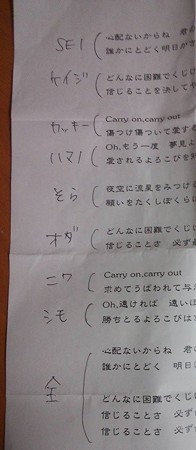 SEI 心配ないからね 君
誰かにとどく 明日が
ケイジ どんなに困難でくじけ
信じることを決してや
カッキー Carry on,carry out
傷つけ傷ついて愛する
ハマノ Oh,もう一度 夢見よ
愛されるよろこびを
そら 夜空に流星をみつける
願いをたくしぼくら
オダ どんなに困難でくじけ
信じることさ 必ず最
ニワ Carry on,carry out
求めてうばわれて与え
シモ Oh,遠ければ 遠いほ
勝ちとるよろこびは
全 心配ないからね 君
誰かにとどく 明日
どんなに困難でくじけ
信じることさ 必ず
どんなに困難でくじ
信じることさ 必ず